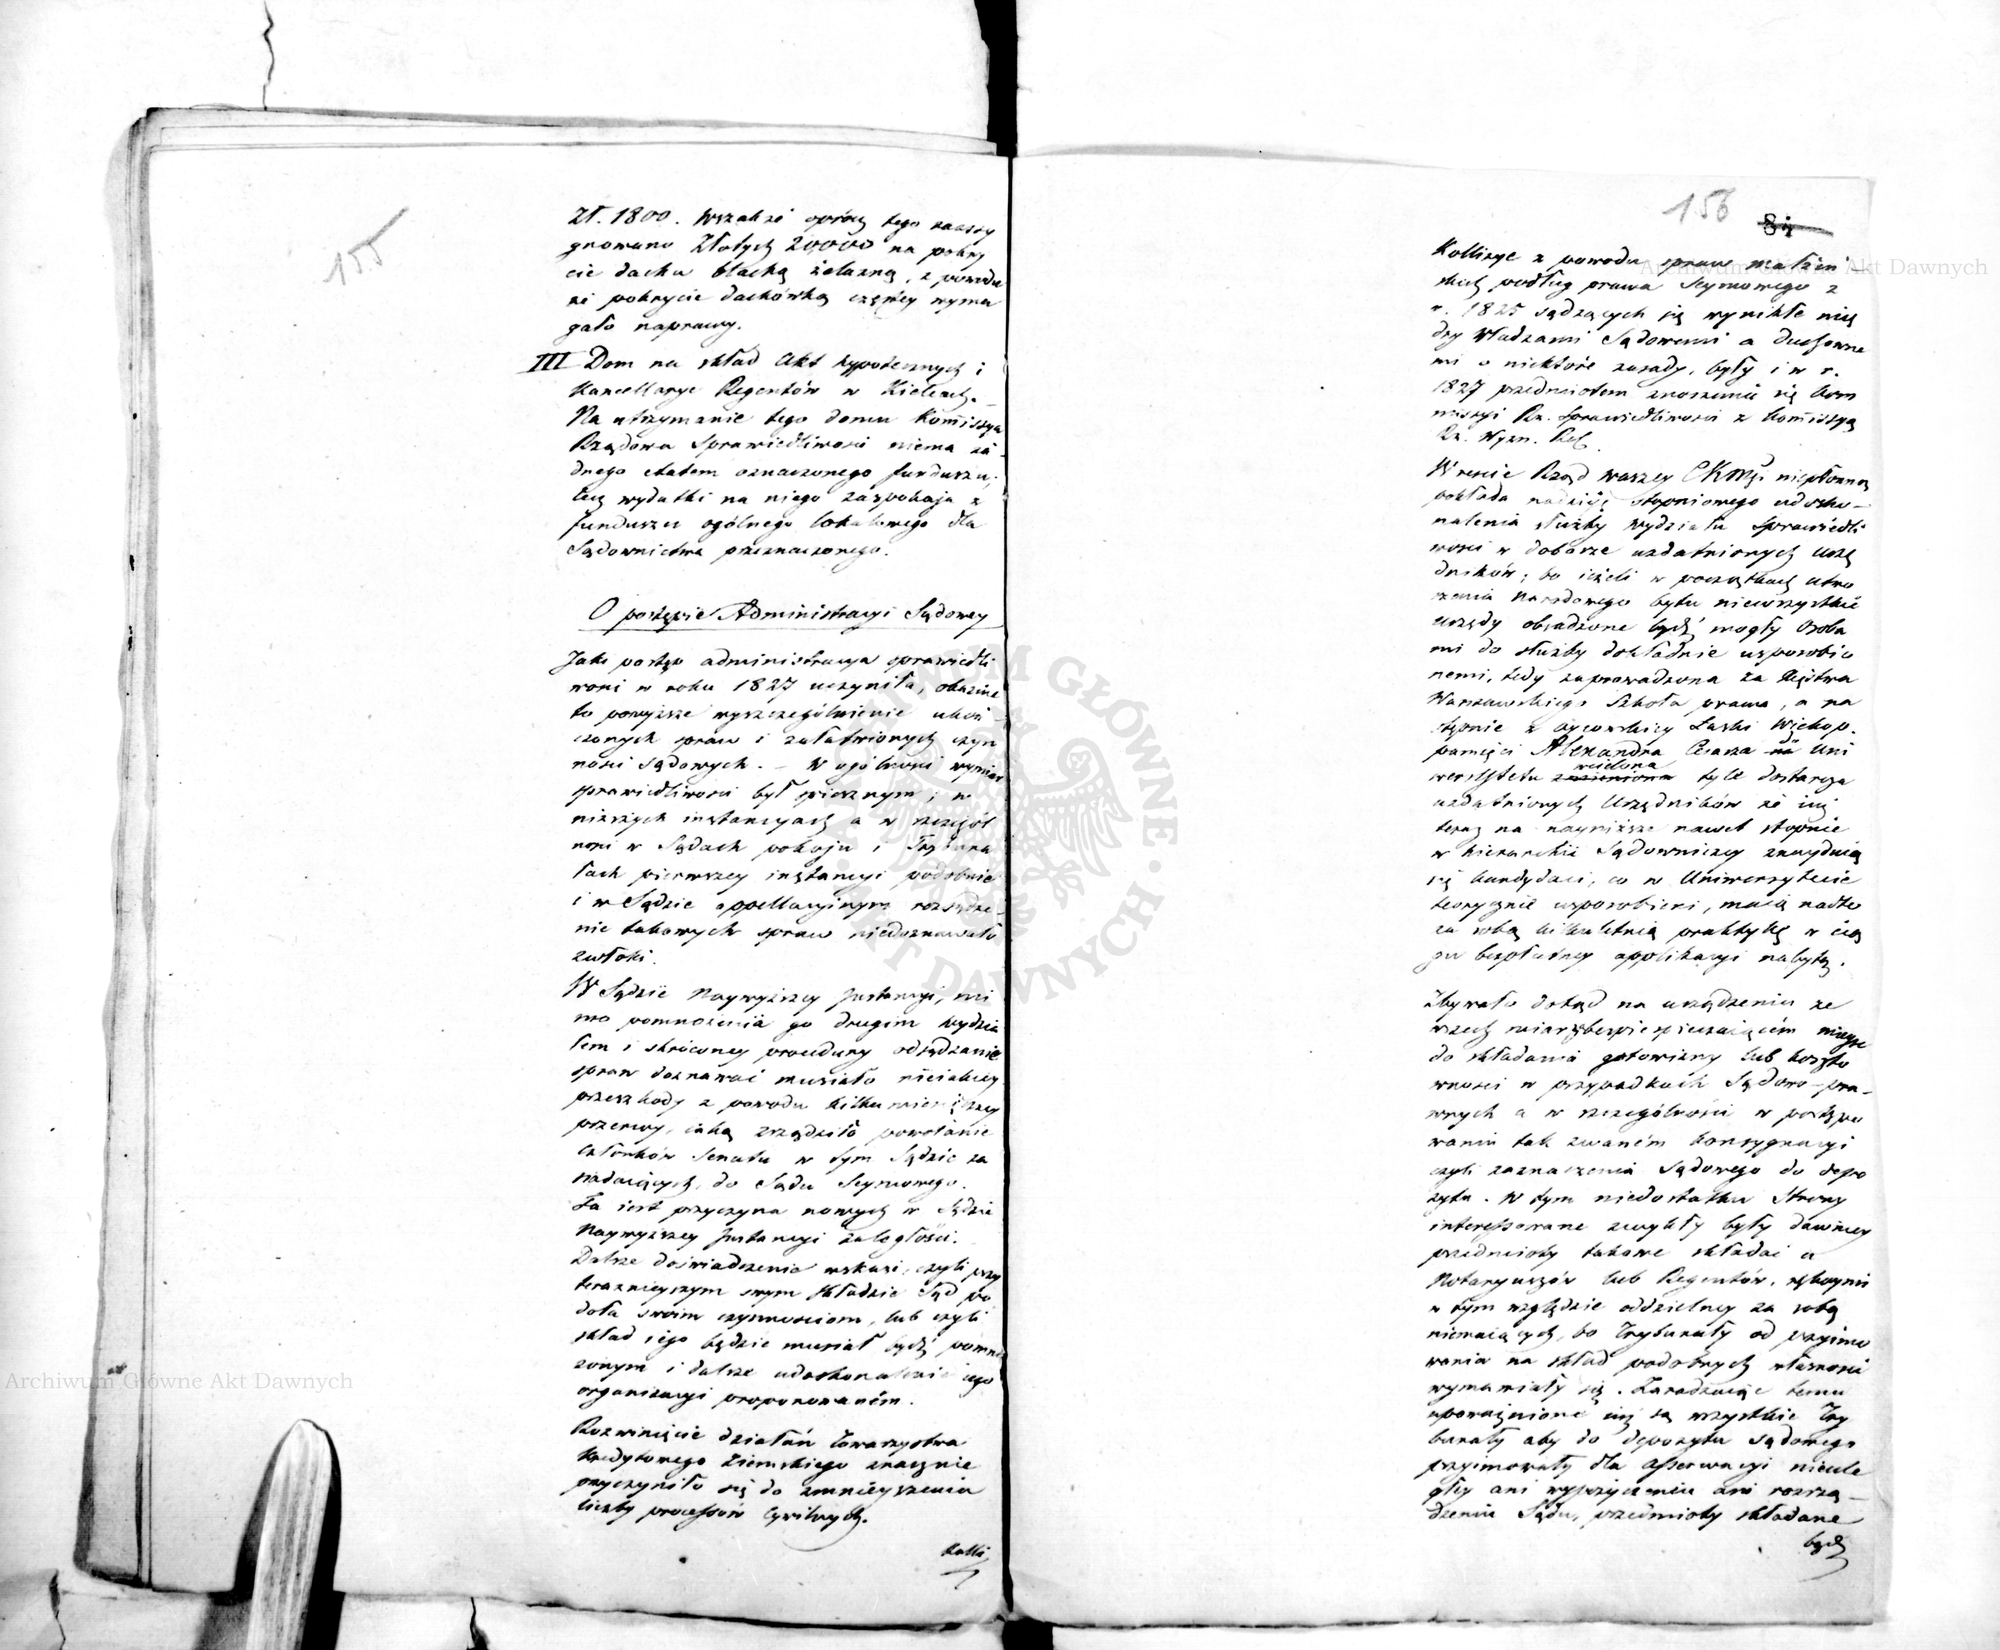 155
Zł. 1800. Wszakże oprócz tego zaassy
gnowano Złotych 20,000 na pokry
cie dachu blachą żelazną, z powodu
że pokrycie dachówką częstey wyma
gało naprawy.
III Dom na skład Akt hypotecznych i
Kancellarye Regentów w Kielcach. _
Na utrzymanie tego domu Kommissya
Rządowa Sprawiedliwości niema ża
dnego etatem oznaczonego funduszu,
lecz wydatki na niego zaspokaja z
funduszu ogólnego lokalowego dla
Sądownictwa przeznaczonego.
O postępie Administracyi Sądowey
Jaki postęp administracya sprawiedli
wości w roku 1827 uczyniła, okazuie
to powyższe wyszczególnienie ukoń
czonych spraw i załatwionych czyn
ności sądowych. _ W ogólności wymiar
sprawiedliwości był spiesznym; w
niższych instancyach a w szczegól
ności w Sądach pokoju i Trybuna
łach pierwszey instancyi podobnie
i w Sądzie appellacyinym rozsądze_
nie takowych spraw niedoznawało
zwłoki.
W Sądzie Naywyższey Instancyi, mi
mo pomnożenia go drugim wydzia
łem i skróconey procedury odsądzanie
spraw doznawać musiało nieiakiey
przeszkody z powodu kilku miesięczney
przerwy, iaką zrządziło powołanie
członków Senatu w tym Sądzie za
siadaiących, do Sądu Seymowego.
Ta iest przyczyna nowych w Sądzie
Naywyższey Instancyi zaległości.
Dalsze doświadczenie wskaże, czyli przy
teraznieyszym swym składzie Sąd po
doła swoim czynnościom, lub czyli
skład iego będzie musiał bydź pomno
żonym i dalsze udoskonalenie iego
organizacyi proponowaném.
Rozwinięcie działań Towarzystwa
Kredytowego Ziemskiego znacznie
przyczyniło się do zmnieyszenia
liczby processów Cywilnych.
Kolli
156
84
Kollizye z powodu spraw małżeń_
skich podług prawa Seymowego z
r. 1825 sądzących się wynikłe mię
dzy Władzami Sądowemi a Duchowne
mi o niektóre zasady, były i w r.
1827 przedmiotem znoszenia się Kom
missyi Rz. Sprawiedliwości z Kommissyą
Rz. Wyzn. Rel.
W reszcie Rząd waszey CKMści niepłonną
pokłada nadzieję stopniowego udosko_
nalenia służby Wydziału Sprawiedli
wości w doborze uzdatnionych Urzę
dników; bo ieżeli w początkach utwo
rzenia Narodowego bytu niewszystkie
urzędy obsadzone bydź mogły Osoba
mi do służby dokładnie usposobio
nemi, tedy zaprowadzona za Xięstwa
Warszawskiego Szkoła prawa, a na
stępnie z oycowskiey Łaski Wiekop.
pamięci Alexandra Cesarza na Uni
wcielona
wersytetu zamieniona tyle dostarcza
uzdatnionych Urzędników że iuż
teraz na nayniższe nawet stopnie
w hierarchii Sądowniczey znayduią
się kandydaci, co w Uniwersytecie
teorycznie usposobieni, maią nadto
za sobą kilkuletnią praktykę w cią
gu bezpłatney applikacyi nabytą.
Zbywało dotąd na urządzeniu ze
wszech miar zabezpieczaiącém mieysce
do składania gotowizny lub koszto
wności w przypadkach Sądowo_pra_
wnych a w szczególności w postępo
waniu tak zwaném konsygnacyi
czyli zaznaczenia Sądowego do depo
zytu. W tym niedostatku Strony
interessowane zwykły były dawniey
przedmioty takowe składać u
Notaryuszów lub Regentów, rękoymi
w tym względzie oddzielney za sobą
niemaiących, bo Trybunały od przyimo
wania na skład podobnych własności
wymawiały się. Zaradzaiąc temu
upoważnione iuż są wszystkie Try
bunały aby do depozytu sądowego
przyimowały dla asserwacyi nieule
głey ani wypożyczeniu ani rozrzą_
dzeniu Sądu, przedmioty składane
bydź
Archiwum Główne Akt Dawnych
Archiwum Główne Akt Dawnych
ARCHIWUM GŁÓWNE AKT DAWNYCH